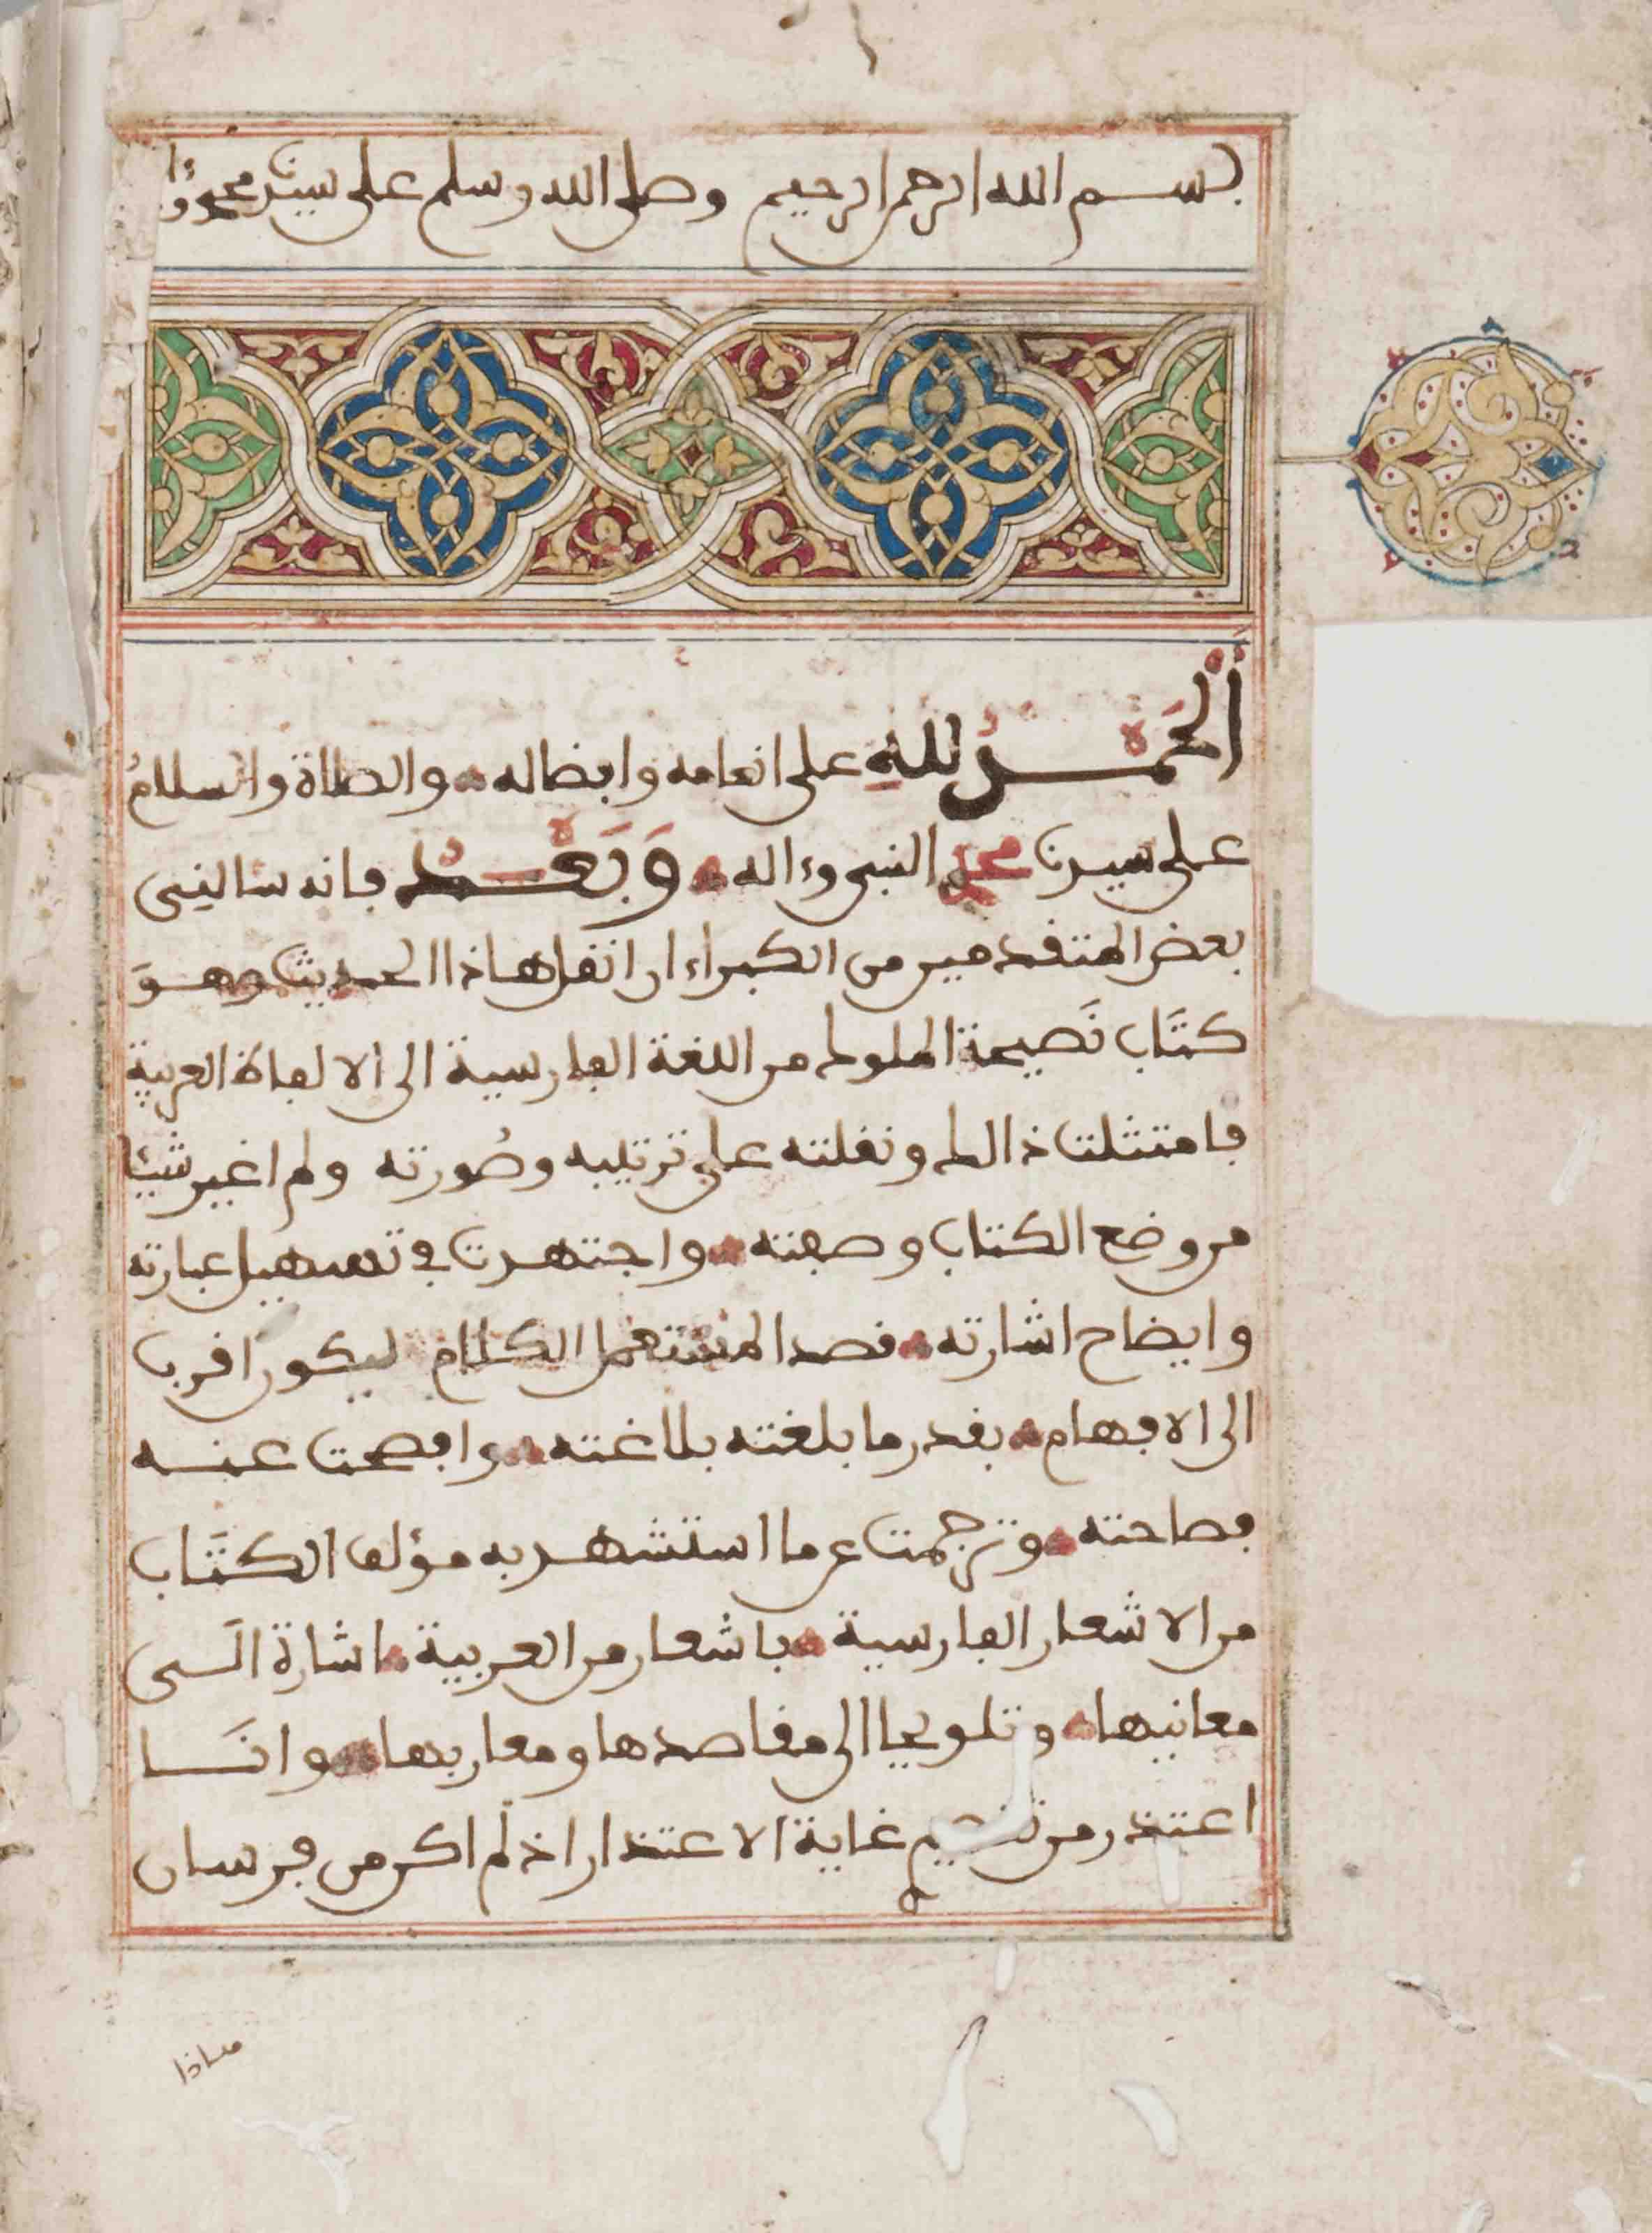 بسم الله الرحمن الرحيم وصلى الله وسلم على سيدنا محمد
اَلْحَمْدُ للهِ على انعامه وافضاله والصلاة والسلامُ
على سيدنا محمد النبي وءاله وَبَعْدُ فانه سالني
بعض المتقدمين من الكبراء ان انقل هاذا الحديث وهوَ
كتَاب نَصيحة الملوك من اللغة الفارسية الى الالفاظ العربية
فامتثلت ذالك ونقلته على ترتيبه وصُورته ولم اغير شيئا
من وضع الكتاب وصفته واجتهدت في تسهيل عبارته
وايضاح اشارته قصدا لمستعمل الكلام ليكون اقرب
الى الافهام بقدر ما بلغته بلاغته وافصحت عنه
فصاحته وترجمت عن ما استشهد به مؤلف الكتَاب
من الاشعار الفارسية باشعار من العربية اشارة الَى
معانيها وتلويحا الى مقاصدها ومعاريفها وانَا
اعتذر من غاية الاعتذار اذ لم اكن من فرسان